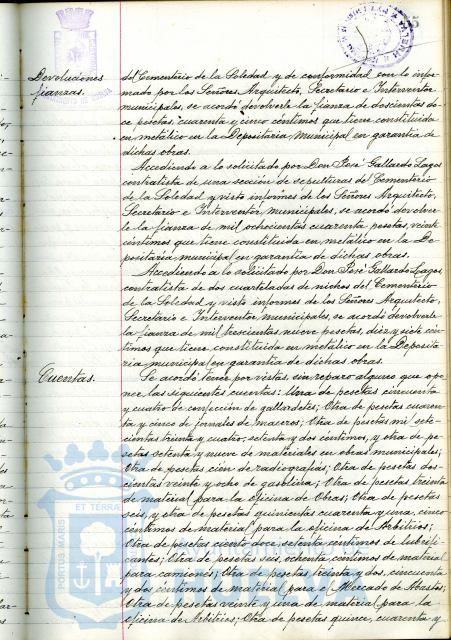 Devoluciones
fianzas.
del Cementerio de la Soledad y de conformidad con lo infor-
mado por los Señores Arquitecto, Secretario e Interventor
municipales, se acordó devolverle la fianza de doscientas do-
ce pesetas, cuarenta y cinco céntimos que tiene constituida
en metálico en la Depositaría municipal en garantía de
dichas obras.
Accediendo a lo solicitado por Don José Gallardo Lagos
contratista de una sección de sepulturas del Cementerio
de la Soledad y visto informes de los Señores Arquitecto,
Secretario e Interventor municipales, se acordó devolver-
le la fianza de mil ochocientas cuarenta pesetas, veinte
céntimos que tiene constituida en metálico en la De-
positaría municipal en garantía de dichas obras.
Accediendo a lo solicitado por Don José Gallardo Lagos,
contratista de dos cuarteladas de nichos del Cementerio
de la Soledad y visto informes de los Señores Arquitecto,
Secretario e Interventor municipales, se acordó devolverle
la fianza de mil trescientas nueve pesetas, diez y siete cén-
timos que tiene constituida en metálico en la Deposita-
ría municipal en garantía de dichas obras.
Cuentas.
Se acordó tener por vistas, sin reparo alguno que opo-
ner las siguientes cuentas: Una de pesetas cincuenta
y cuatro de confección de gallardetes; Otra de pesetas cuaren-
ta y cinco de jornales de maceros; Otra de pesetas mil sete-
cientas treinta y cuatro, setenta y dos céntimos, y otra de pe-
setas setenta y nueve de materiales en obras municipales;
Otra de pesetas cien de radiografías; Otra de pesetas dos-
cientas veinte y ocho de gasolina; Otra de pesetas treinta
de material para la oficina de Obras; Otra de pesetas
seis, y otra de pesetas quinientas cuarenta y una, cinco
céntimos de material para la oficina de Arbitrios;
Otra de pesetas ciento doce, setenta céntimos de lubrifi-
cantes; Otra de pesetas seis, ochenta céntimos de material
para camiones; Otra de pesetas treinta y dos, cincuenta
y dos céntimos de material para el Mercado de Abastos;
Otra de pesetas veinte y una de material para la
oficina de Arbitrios; Otra de pesetas quince, cuarenta y
PORTUS MARIS
ET TERRÆ
Ayuntamiento de